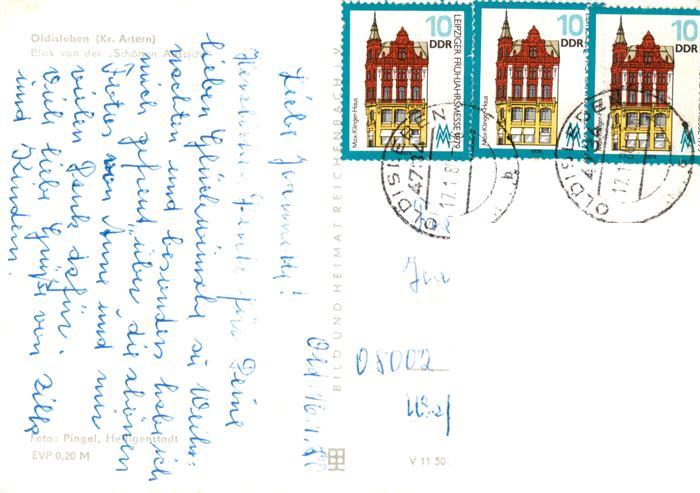 Oldisleben (Kr. Artern)
Blick von der „Schönen Aussicht"
Old., 16.1.81
Liebe Jeannette!
Herzlichen Dank für Deine
lieben Glückwünsche zu Weih-
nachten und besonders habe ich
mich gefreut über die schönen
Fotos von Anne und mir
vielen Dank dafür.
Viele liebe Grüße von Zilla
und Kindern.
Foto: Pingel, Heiligenstadt
EVP 0,20 M
BILD UND HEIMAT REICHENBACH V.
V 11 50
10
DDR
LEIPZIGER FRÜHJAHRSMESSE 1979
Max-Klinger-Haus
10
DDR
Max-Klinger-Haus
10
DDR
Max-Klinger-Haus
OLDISLEBEN
4734
17.1.8
OLDISLEBEN
4734
17.1.8